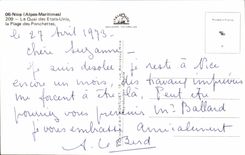 06-Nice (Alpes-Maritimes)
200 - Le Quai des Etats-Unis,
la Plage des Ponchettes.
le 27 Avril 1973.
Chère Suzanne -
Je suis désolée, je reste à Nice
encore un mois, des travaux imprévus
me forcent à être là. Peut être
pourrez vous prévenir Mr Ballard
je vous embrasse amicalement